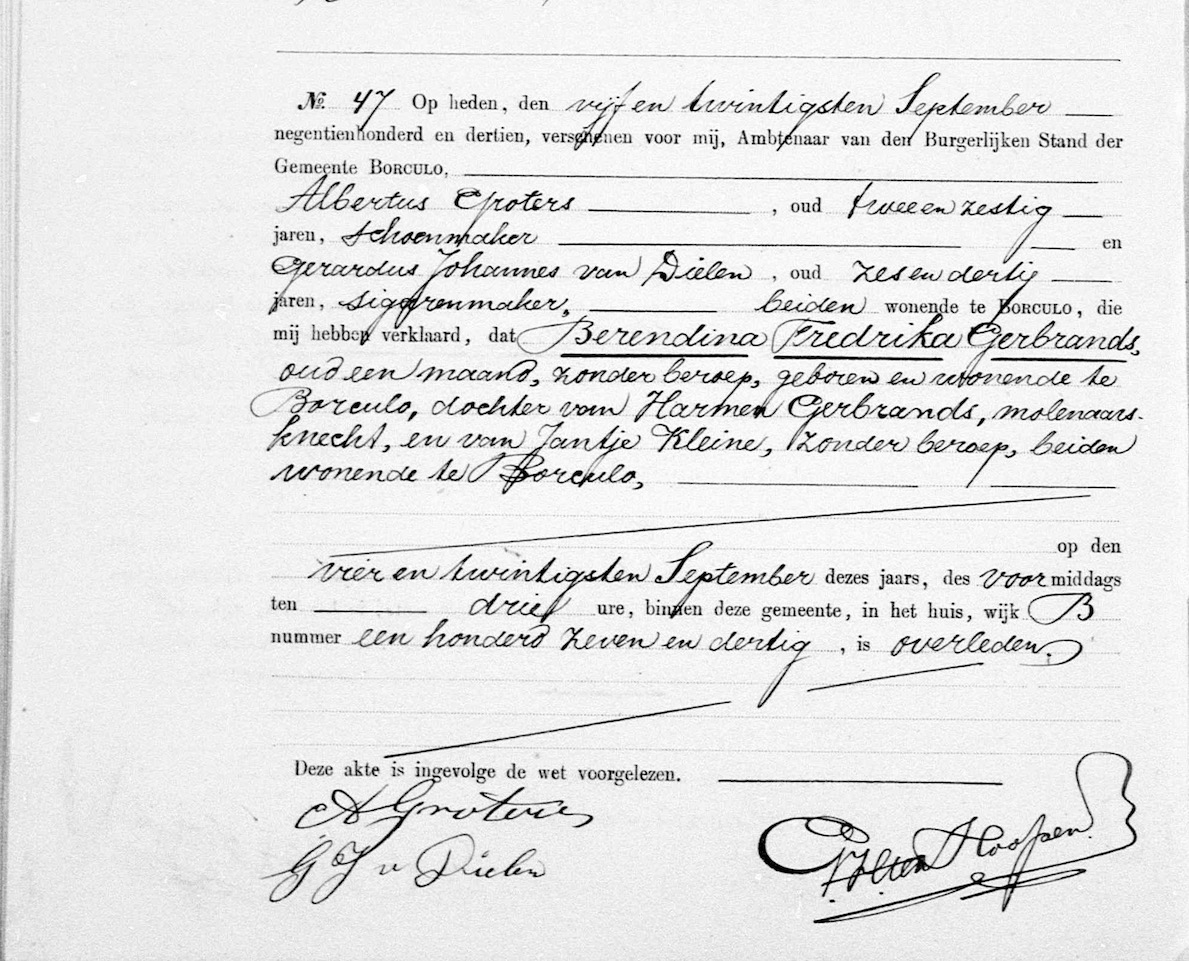 No. 47 Op heden, den vijf en twintigsten September
negentienhonderd en dertien, verschenen voor mij, Ambtenaar van den Burgerlijken Stand der
Gemeente BORCULO,
Albertus Groters, oud twee en zestig
jaren, schoenmaker en
Gerardus Johannes van Dielen, oud zes en dertig
jaren, sigarenmaker, beiden wonende te BORCULO, die
mij hebben verklaard, dat Berendina Fredrika Gerbrands,
oud een maand, zonder beroep, geboren en wonende te
Borculo, dochter van Harmen Gerbrands, molenaars-
knecht, en van Jantje Kleine, zonder beroep, beiden
wonende te Borculo,
op den
vier en twintigsten September dezes jaars, des voormiddags
ten drie ure, binnen deze gemeente, in het huis, wijk B
nummer een honderd zeven en dertig, is overleden.
Deze akte is ingevolge de wet voorgelezen.
A Groters
G J v Dielen